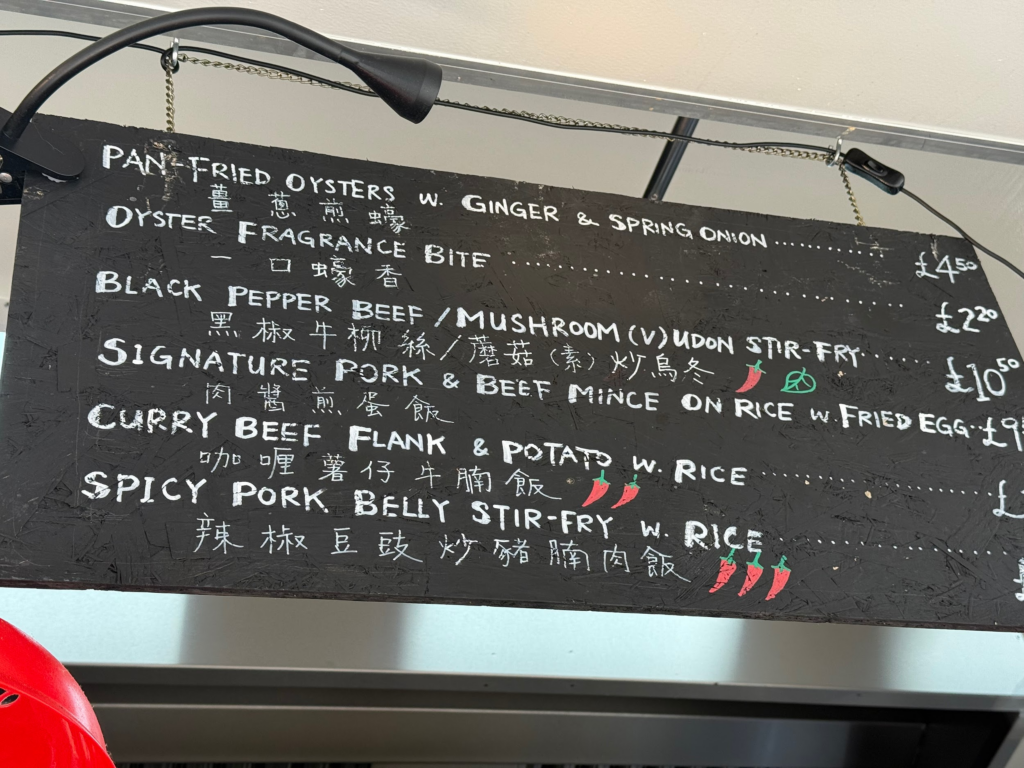 PAN-FRIED OYSTERS W. GINGER & SPRING ONION .............. £4.50
薑 蔥 煎 蠔
OYSTER FRAGRANCE BITE ........................................ £2.20
一 口 蠔 香
BLACK PEPPER BEEF / MUSHROOM (V) UDON STIR-FRY ...... £10.50
黑 椒 牛 柳 絲 / 蘑菇 (素) 炒烏冬
SIGNATURE PORK & BEEF MINCE ON RICE W. FRIED EGG .. £9
肉 醬 煎 蛋 飯
CURRY BEEF FLANK & POTATO W. RICE ........................ £
咖 喱 薯 仔 牛 腩 飯
SPICY PORK BELLY STIR-FRY W. RICE ........................ £
辣 椒 豆 豉 炒 豬 腩 肉 飯